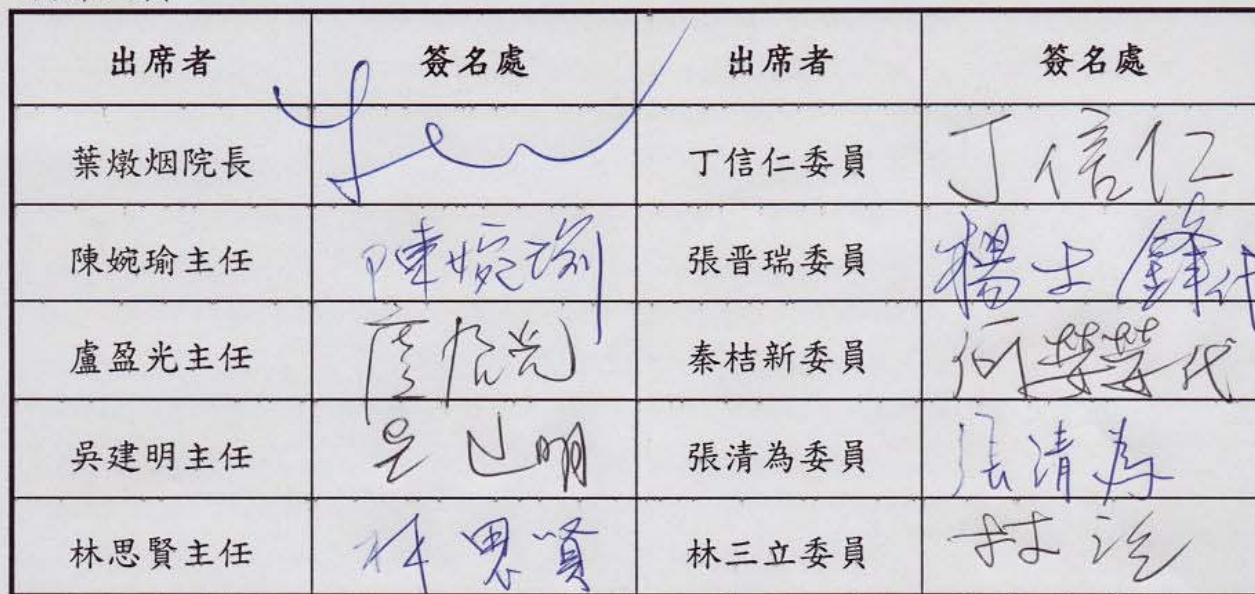 出席者 簽名處 出席者 簽名處
葉燉烟院長 丁信仁委員 丁信仁
陳婉瑜主任 陳婉瑜 張晋瑞委員 楊士鋒代
盧盈光主任 秦桔新委員 何瑩瑩代
吳建明主任 吴建明 張清為委員 張清為
林思賢主任 林思賢 林三立委員